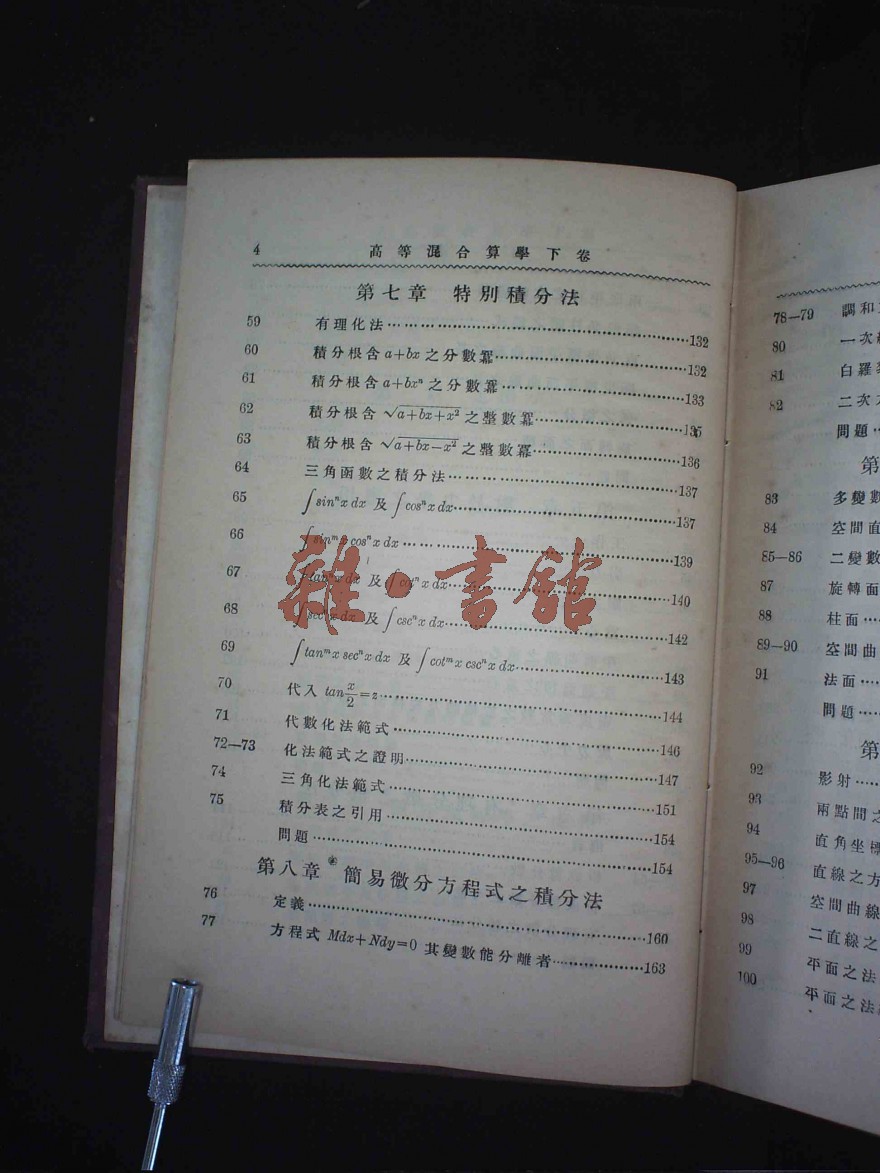 4 高等混合算學下卷
第七章 特別積分法
59 有理化法……………………132
60 積分根含 a+bx 之分數冪……………………132
61 積分根含 a+bxⁿ 之分數冪……………………133
62 積分根含 √a+bx+x² 之整數冪……………………135
63 積分根含 √a+bx−x² 之整數冪……………………136
64 三角函數之積分法……………………137
65 ∫sinⁿx dx 及 ∫cosⁿx dx……………………137
66 ∫sinᵐx cosⁿx dx……………………139
67 ∫tanⁿx dx 及 ∫cotⁿx dx……………………140
68 ∫secⁿx dx 及 ∫cscⁿx dx……………………142
69 ∫tanᵐx secⁿx dx 及 ∫cotᵐx cscⁿx dx……………………143
70 代入 tan x/2=z……………………144
71 代數化法範式……………………146
72—73 化法範式之證明……………………147
74 三角化法範式……………………151
75 積分表之引用……………………154
問題……………………154
第八章 簡易微分方程式之積分法
76 定義……………………160
77 方程式 Mdx+Ndy=0 其變數能分離者……………………163
雜·書館
78—79 調和
80 一次
81 白羅
82 二次
問題
第
83 多變數
84 空間直
85—86 二變數
87 旋轉面
88 柱面
89—90 空間曲
91 法面
問題
第
92 影射
93 兩點間之
94 直角坐標
95—96 直線之方
97 空間曲線
98 二直線之
99 平面之法
100 平面之法